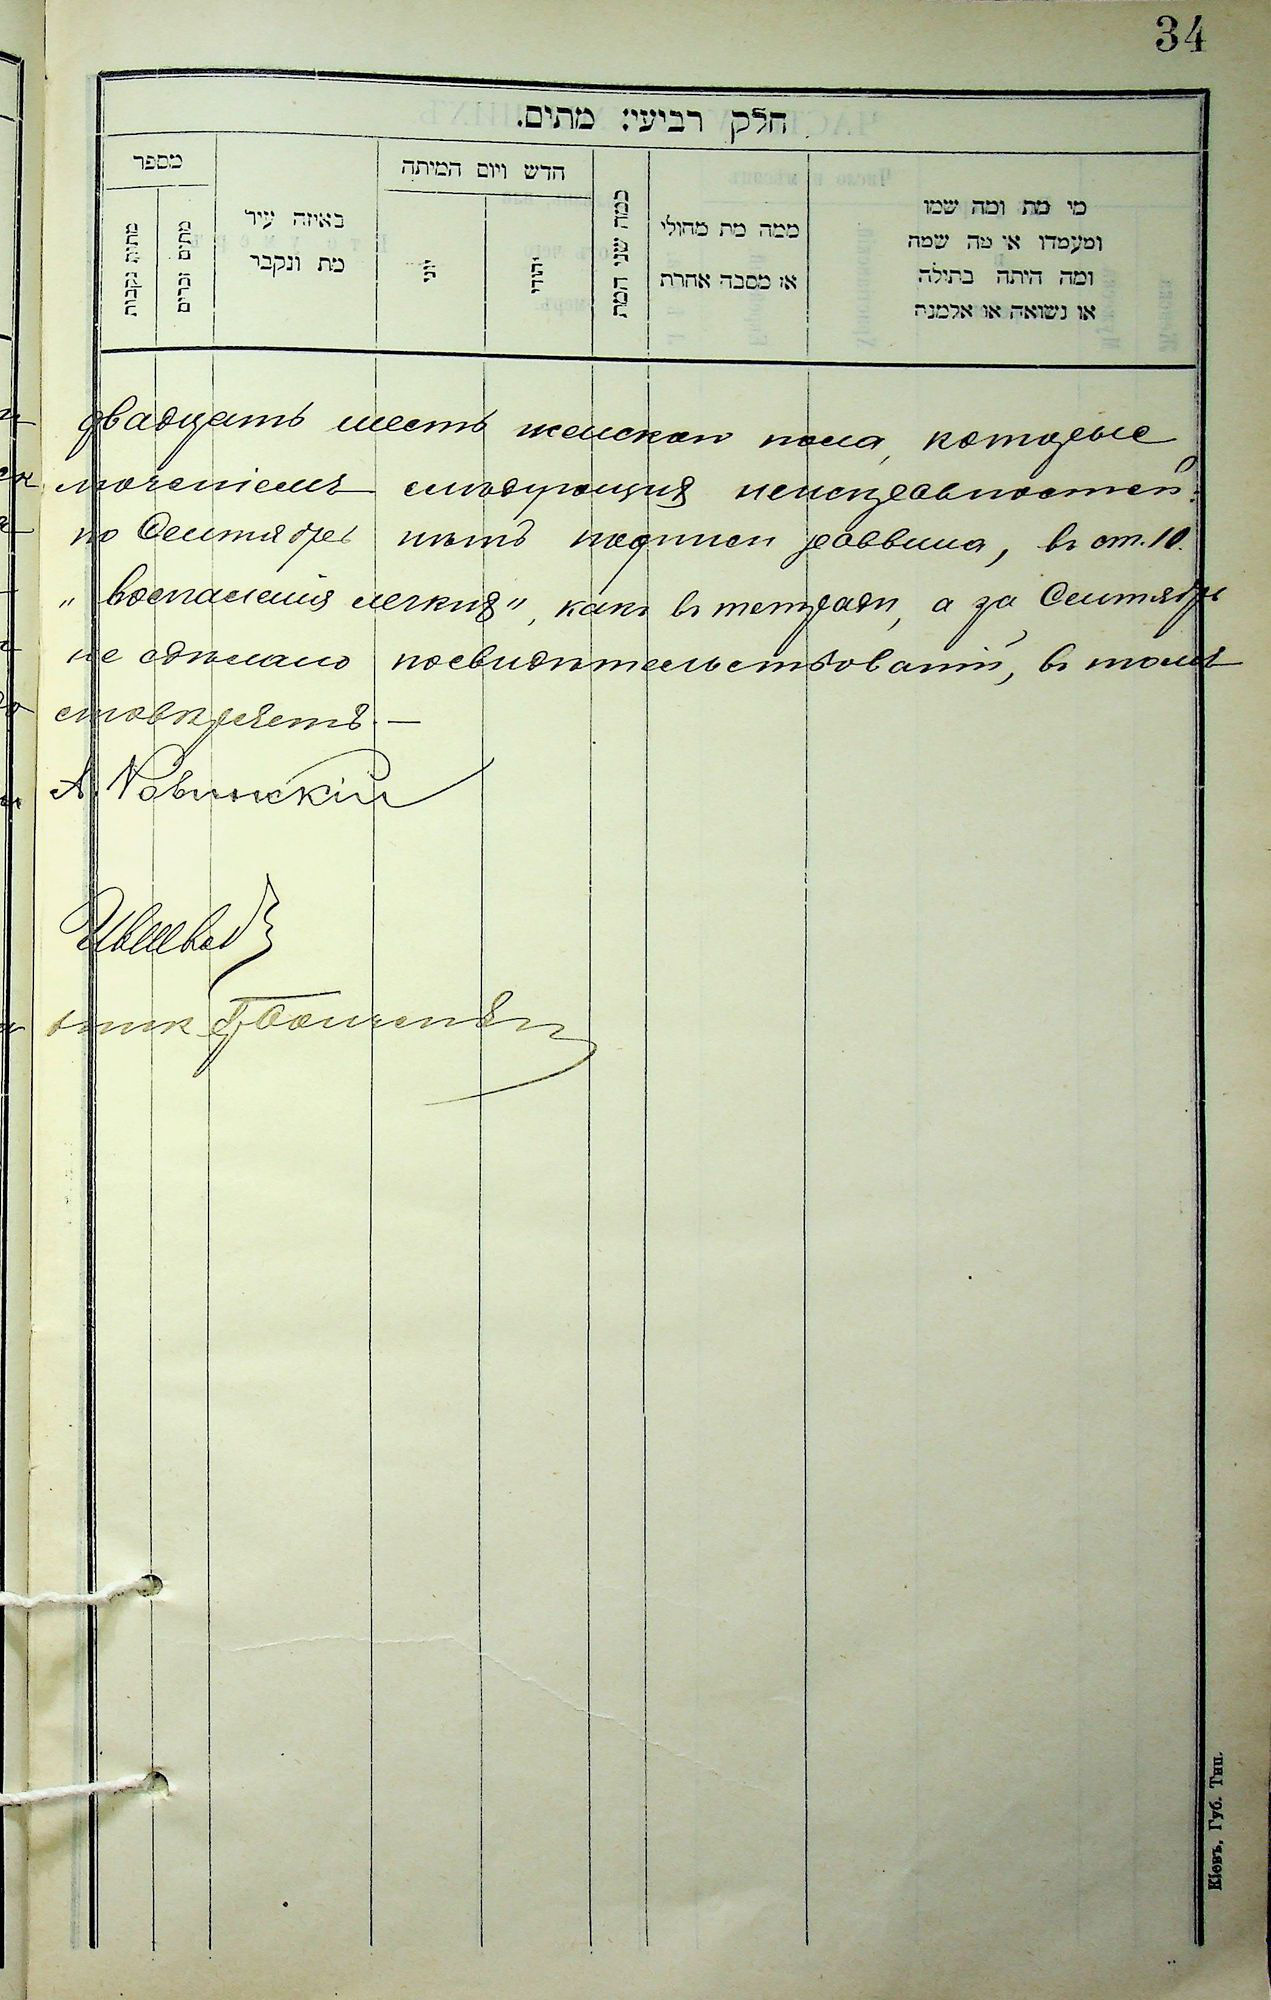 34
חלק רביעי: מתים.
מספר
מתות נקבות
מתים זכרים
באיזה עיר
מת ונקבר
חדש ויום המיתה
יוני
יהודי
כמה שני המת
ממה מת מחולי
או מסבה אחרת
מי מת ומה שמו
ומעמדו או מה שמה
ומה היתה בתולה
או נשואה או אלמנה
двадцать шесть женскаго пола, которые
лоченіемъ слѣдующихъ неисправностей:
по Сентябрь нѣтъ подписи раввина, въ ст. 10.
„воспаленія легкихъ", какъ въ тетради, а за Сентябрь
не сдѣлано посвидѣтельствованій, въ томъ
стовѣряетъ. —
А. Ровинскій
Кіевъ, Губ. Тип.